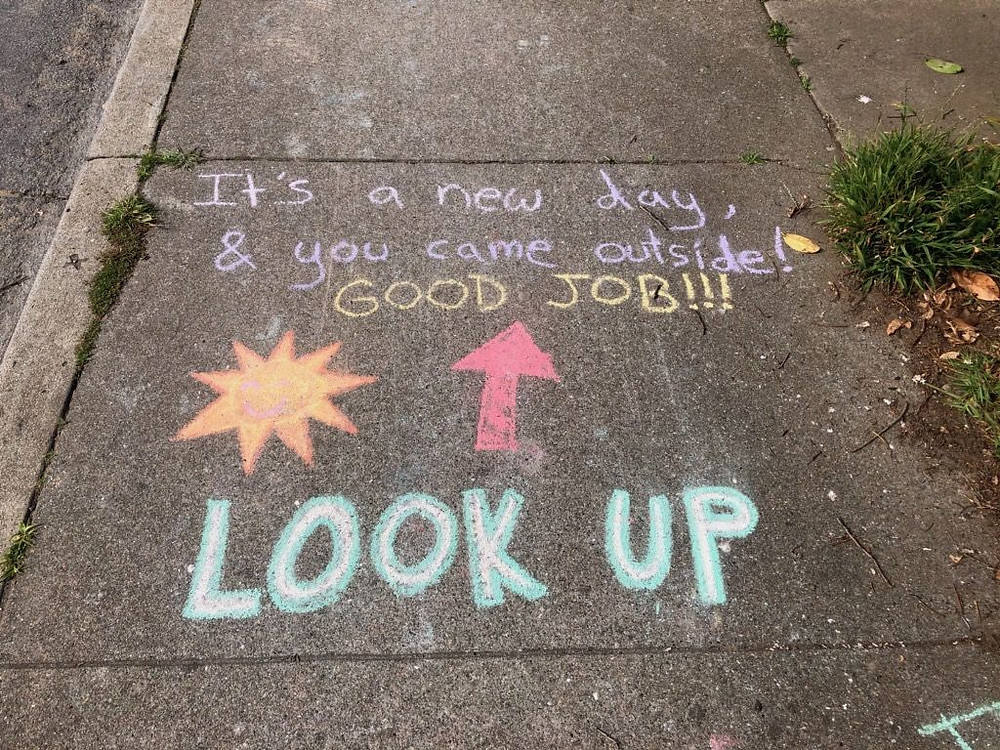 It's a new day,
& you came outside!
GOOD JOB!!!
LOOK UP